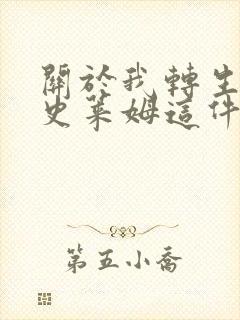 關於我轉生
史萊姆這件
第五小喬